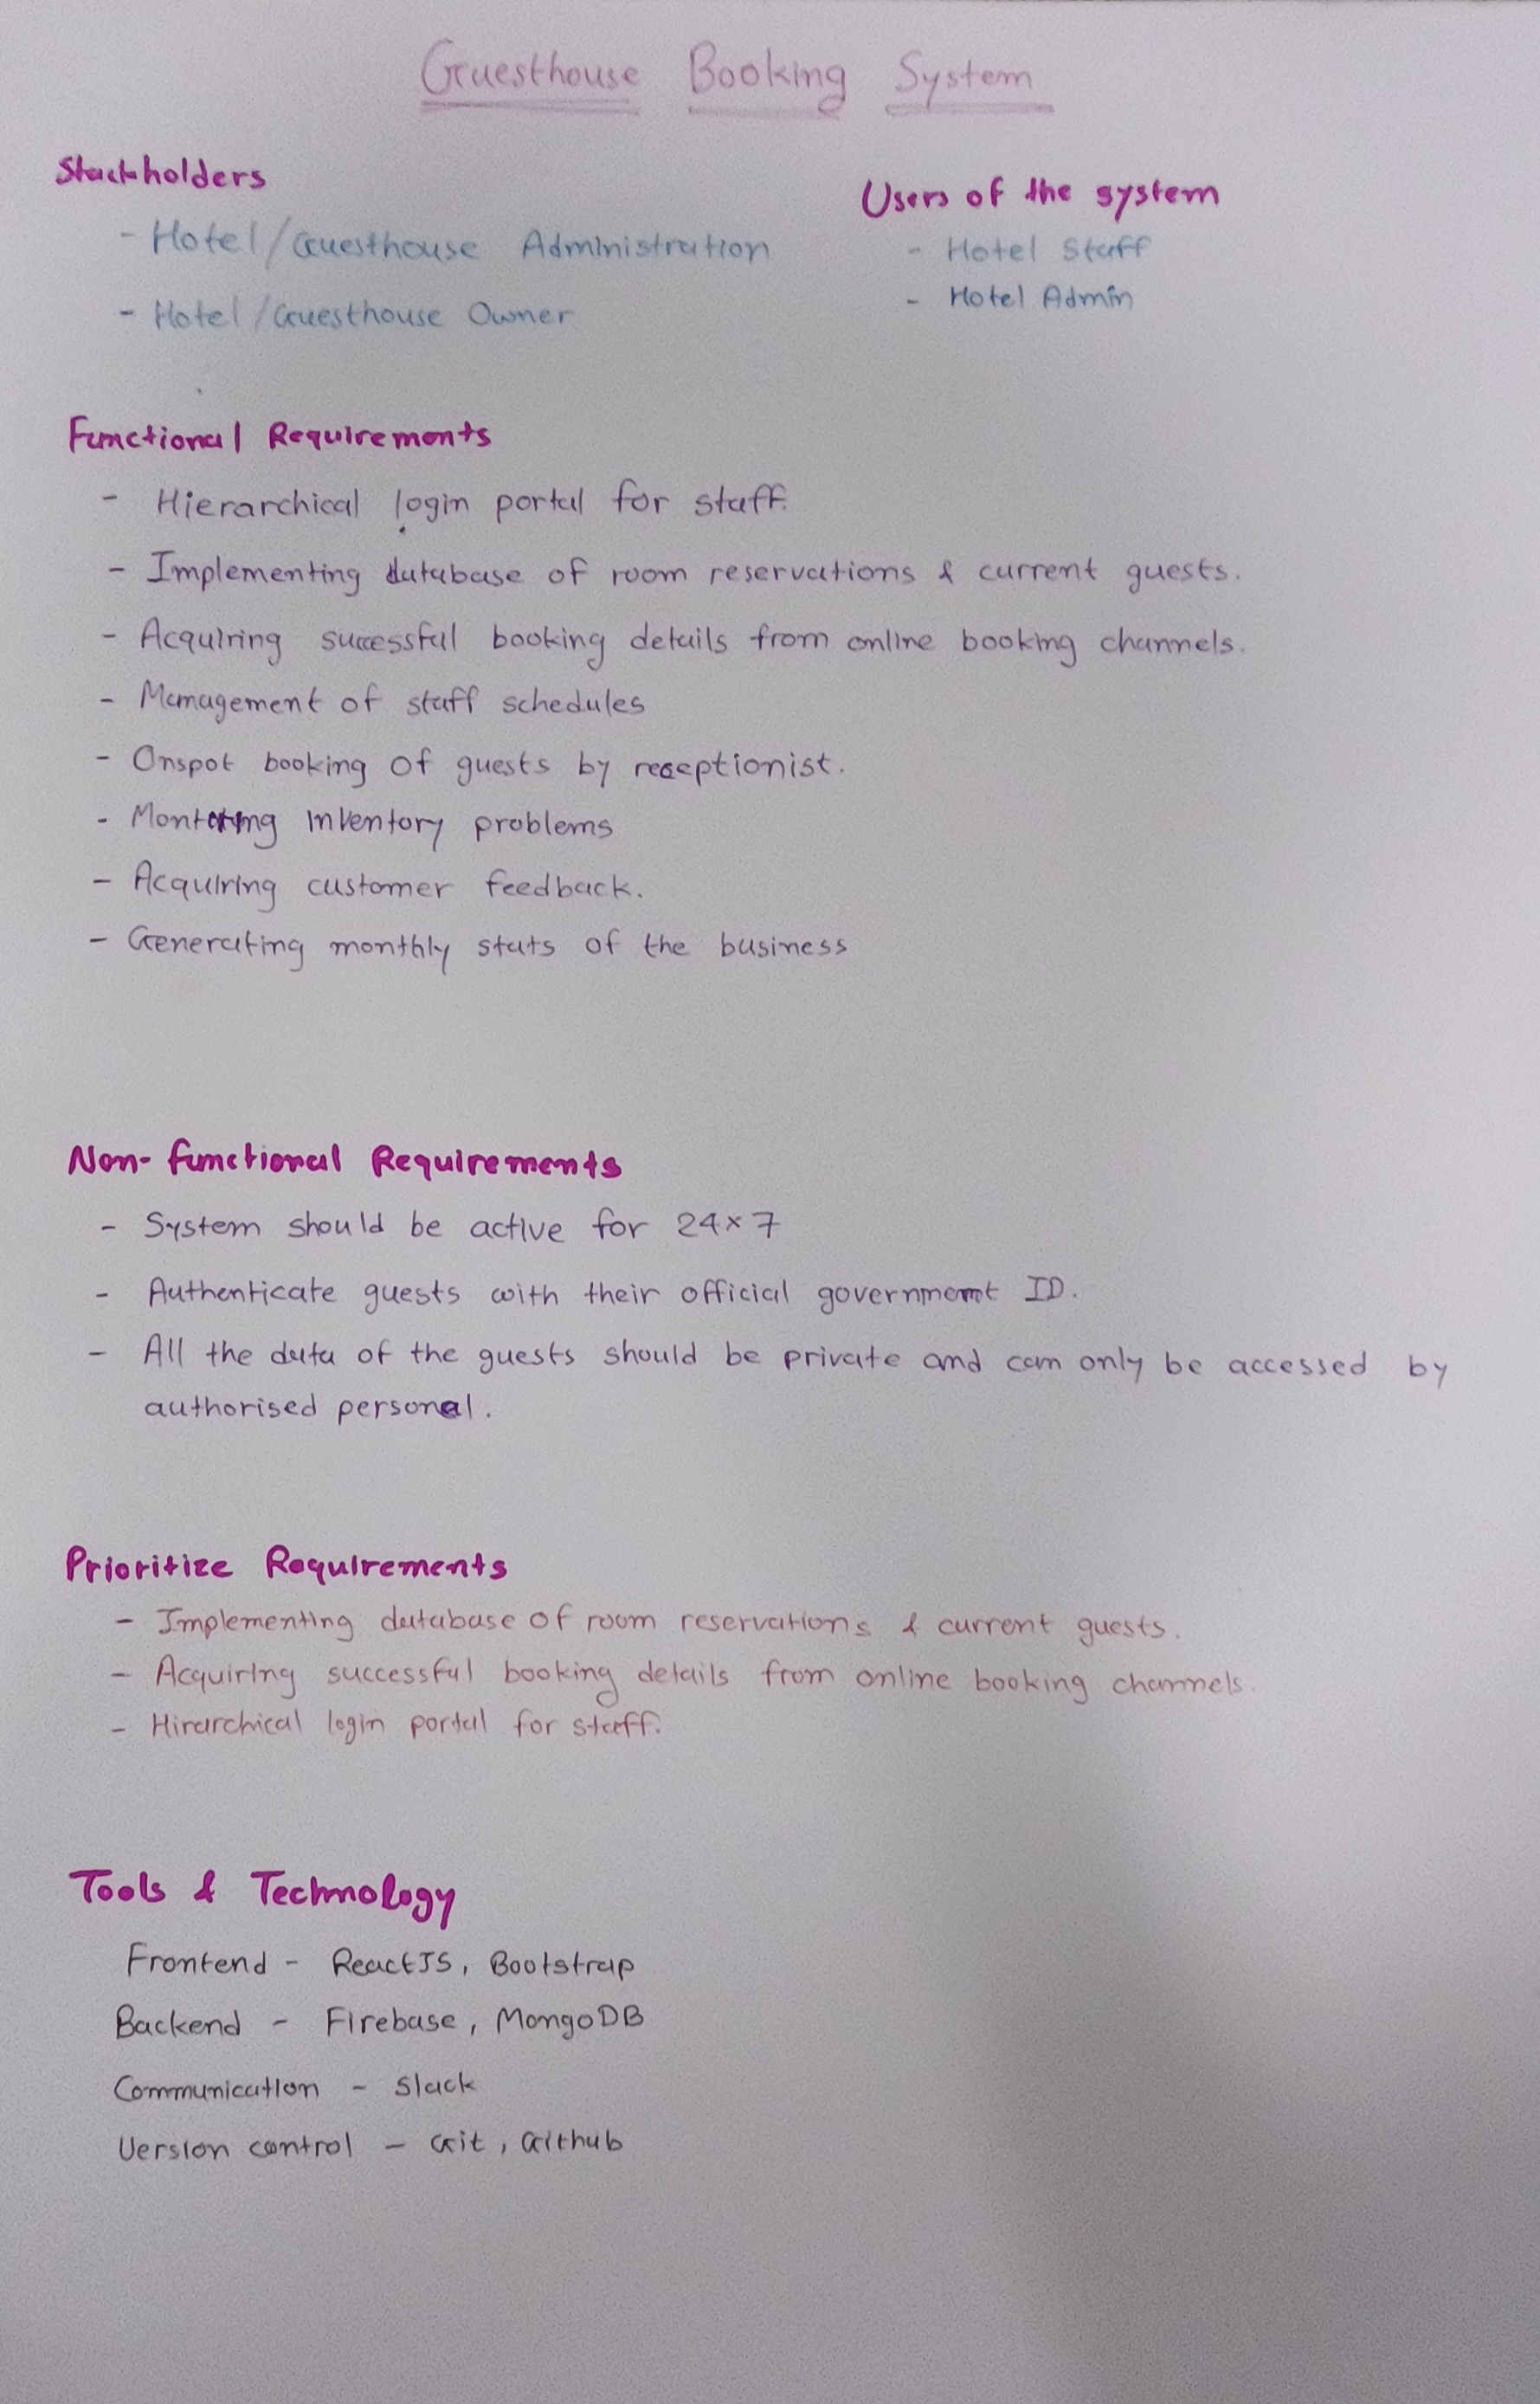 Guesthouse Booking System
Stackholders
- Hotel/Guesthouse Administration
- Hotel/Guesthouse Owner
Users of the system
- Hotel Staff
- Hotel Admin
Functional Requirements
- Hierarchical login portal for staff.
- Implementing database of room reservations & current guests.
- Acquiring successful booking details from online booking channels.
- Management of staff schedules
- Onspot booking of guests by receptionist.
- inventory problems
- Acquiring customer feedback.
- Generating monthly stats of the business
Non-functional Requirements
- System should be active for 24×7
- Authenticate guests with their official government ID.
- All the data of the guests should be private and can only be accessed by
authorised personal.
Prioritize Requirements
- Implementing database of room reservations & current guests.
- Acquiring successful booking details from online booking channels.
- Hirarchical login portal for staff.
Tools & Technology
Frontend - ReactJS, Bootstrap
Backend - Firebase, MongoDB
Communication - Slack
Version control - Git, Github